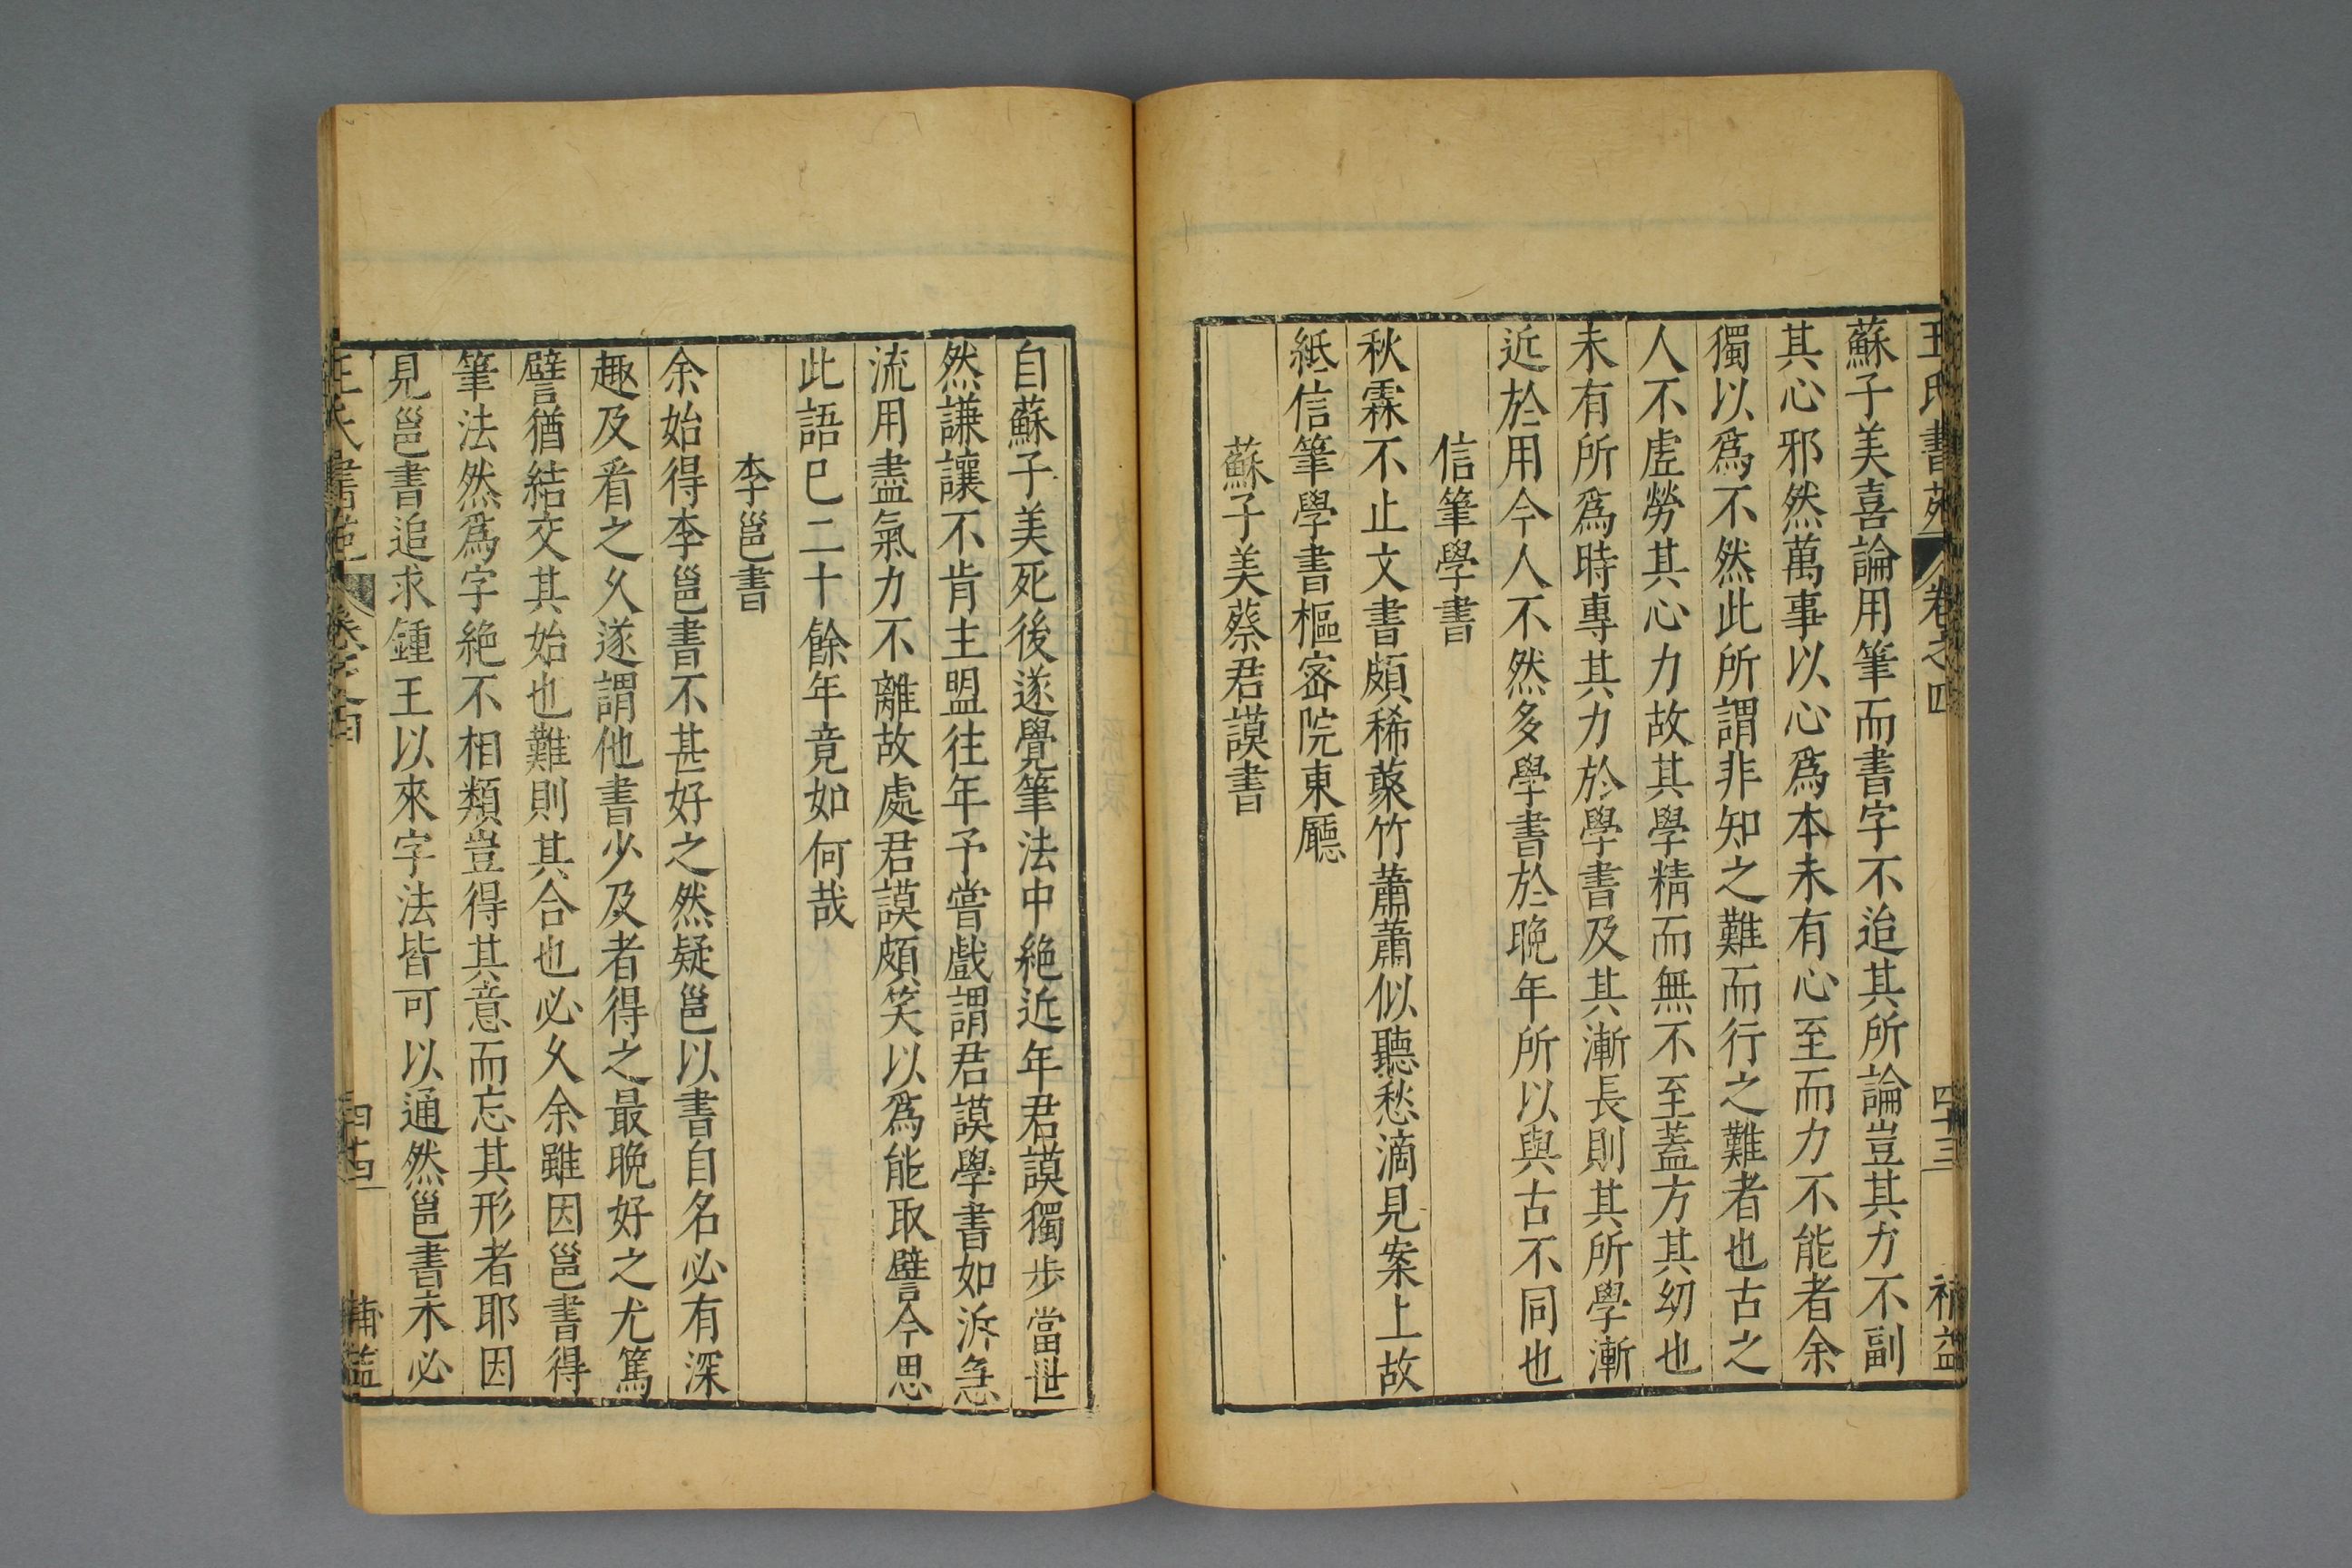 王氏書苑 卷之四 四十三 補益
蘇子美喜論用筆而書字不迨其所論豈其力不副
其心邪然萬事以心爲本未有心至而力不能者余
獨以爲不然此所謂非知之難而行之難者也古之
人不虛勞其心力故其學精而無不至蓋方其幼也
未有所爲時專其力於學書及其漸長則其所學漸
近於用今人不然多學書於晚年所以與古不同也
信筆學書
秋霖不止文書頗稀藂竹蕭蕭似聽愁滴見案上故
紙信筆學書樞密院東廳
蘇子美蔡君謨書
自蘇子美死後遂覺筆法中絕近年君謨獨步當世
然謙讓不肯主盟往年予嘗戲謂君謨學書如泝急
流用盡氣力不離故處君謨頗笑以爲能取譬今思
此語巳二十餘年竟如何哉
李邕書
余始得李邕書不甚好之然疑邕以書自名必有深
趣及看之乆遂謂他書少及者得之最晚好之尤篤
譬猶結交其始也難則其合也必乆余雖因邕書得
筆法然爲字絕不相類豈得其意而忘其形者耶因
見邕書追求鍾王以來字法皆可以通然邕書未必
王氏書苑 卷之四 四十四 補益